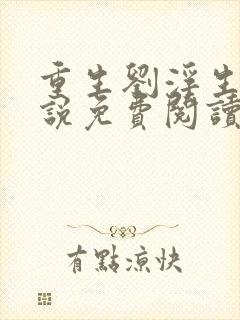 重生劉淫生
說免費閱讀
有點涼快